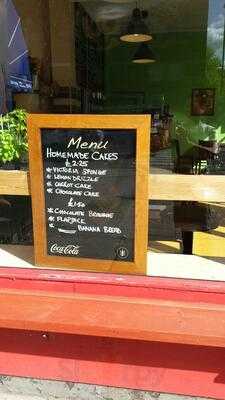 Menu
HOMEMADE CAKES
£2.25
* VICTORIA SPONGE
* LEMON DRIZZLE
* CARROT CAKE
* CHOCOLATE CAKE
£1.50
* CHOCOLATE BROWNIE
* FLAPJACK
* BANANA BREAD
Coca-Cola